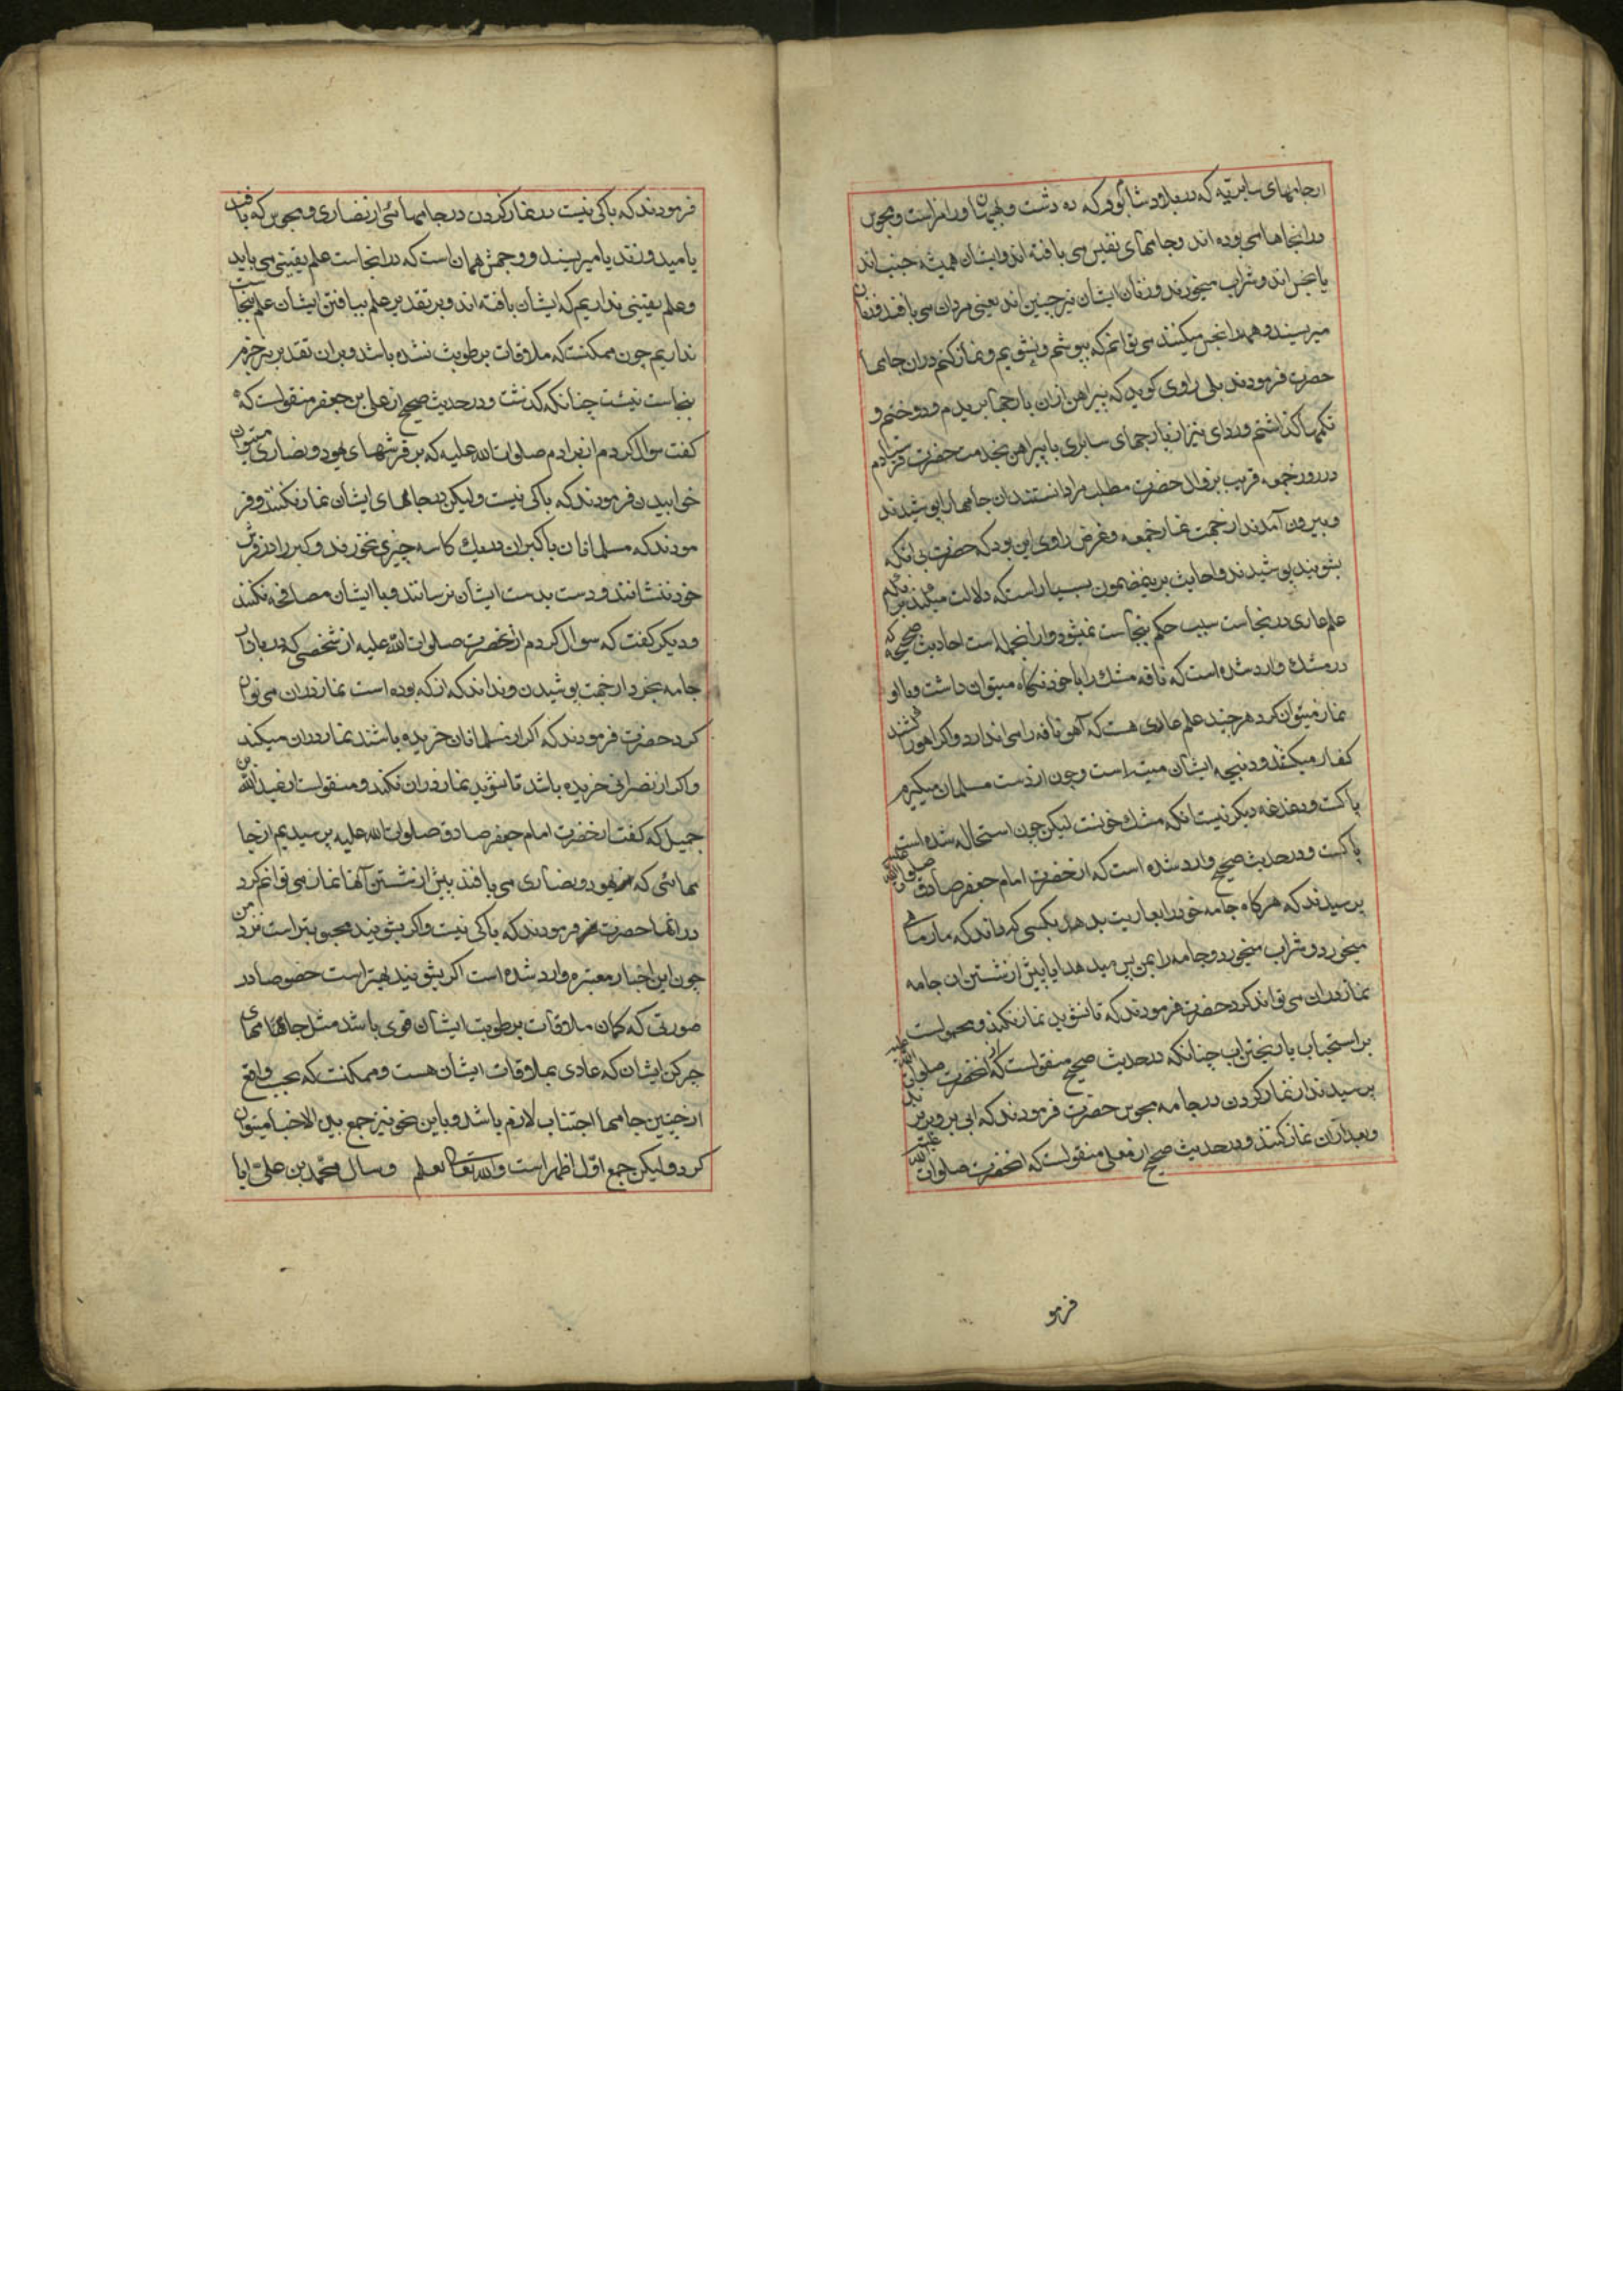 ازجامهای سابریه که در بلاد شاپور که ده دشت و بهبهان و رامز است و مجوس
در اینجاها می بوده اند و جامهای نفیس می بافته اند و ایشان همیشه جنب اند
یا نجس اند و شراب میخورند و زنان ایشان نیز چنین اند یعنی مردان می بافند و زنان
میریسند و همه را نجس میکنند می توانم که بپوشم و نشویم و نماز کنم در ان جامها
حضرت فرمودند بلی راوی کوید که پیراهن ازان پارچها بریدم و دوختم و
تکمها کذاشتم و ردای نیز ازپارچهای سابری با پیراهن بخدمت حضرت فرستادم
در روز جمعه قریب بزوال حضرت مطلب مرا دانستند ان جامها را پوشیدند
و بیرون آمدند ازجهت نماز جمعه و غرض راوی این بود که حضرت بی انکه
بشویند پوشیدند و احادیث برینمضمون بسیار است که دلالت میکند برانکه
علم عادی در نجاست سبب حکم بنجاست نمیشود و از انجمله است احادیث صحیحه که
در مشک وارد شده است که نافه مشک را با خود نکاه میتوان داشت و با او
نماز میتوان کرد هرچند علم عادی هست که آهن نافه را می اندازد و اکر اهو را کشند
کفار میکشند و ذبیحه ایشان میته است و چون از دست مسلمان میکیرم
پاکست و دغدغه دیکر نیست انکه مشک خونست لیکن چون استحاله شده است
پاکست و در حدیث صحیح وارد شده است که از حضرت امام جعفر صادق صلوات الله علیه
پرسیدند که هرکاه جامه خود را بعاریت بدهد بکسی که داند که مارماهی
میخورد و شراب میخورد و جامه را بمن پس میدهد ایا پیش از شستن ان جامه
نماز دران می تواند کرد حضرت فرمودند که تا نشوید نماز نکند و محمولست
بر استحباب یا ریختن اب چنانکه در حدیث صحیح منقولست که از انحضرت صلوات الله علیه
پرسیدند از نماز کردن در جامه مجوس حضرت فرمودند که ابی برو بریزند
و بعد ازان نماز کنند و در حدیث صحیح از معلی منقولست که انحضرت صلوات الله علیه
فرمو
فرمودند که باکی نیست در نماز کردن در جامهائی از نصاری و مجوس که بافند
یا میدوزند یا میریسند و وجهش همان است که در انجاست علم یقینی می باید
و علم یقینی نداریم که ایشان بافته اند و بر تقدیر علم ببافتن ایشان علم بنجاست
نداریم چون ممکنست که ملاقات برطوبت نشده باشد و بران تقدیر نیز جزم
بنجاست نیست چنانکه کذشت و در حدیث صحیح از علی بن جعفر منقولست که
کفت سوال کردم از برادرم صلوات الله علیه که بر فرشهای یهود و نصاری میتوان
خوابیدن فرمودند که باکی نیست ولیکن در جامهای ایشان نماز نکنند و فر
مودند که مسلمانان با کبران در یک کاسه چیزی نخورند و کبر را در فرش
خود ننشانند و دست بدست ایشان نرسانند و با ایشان مصافحه نکنند
و دیکر کفت که سوال کردم ازانحضرت صلوات الله علیه از شخصی که در بازار
جامه بخرد ازجهت پوشیدن و نداند که از که بوده است نماز دران می توان
کرد حضرت فرمودند که اکر از مسلمانان خریده باشد نماز دران میکند
و اکر از نصرانی خریده باشد تا نشوید نماز دران نکند و منقولست از عبدالله بن
جمیل که کفت از حضرت امام جعفر صادق صلوات الله علیه پرسیدیم ازجا
مهائی که یهود و نصاری می بافند پیش از شستن آنها نماز می توانم کرد
درانها حضرت فرمودند که باکی نیست و اکر بشویند محبوبتر است نزد من
چون این اخبار معتبره وارد شده است اکر بشویند بهتر است خصوصا در
صورتی که کمان ملاقات برطوبت ایشان قوی باشد مثل جامهای
چرکن ایشان که عادی بملاقات ایشان هست و ممکنست که بحسب واقع
ازچنین جامها اجتناب لازم باشد و باین نحو نیز جمع بین الاخبار میتوان
کرد ولیکن جمع اول اظهر است والله تعالی یعلم و سال محمد بن علی ایا